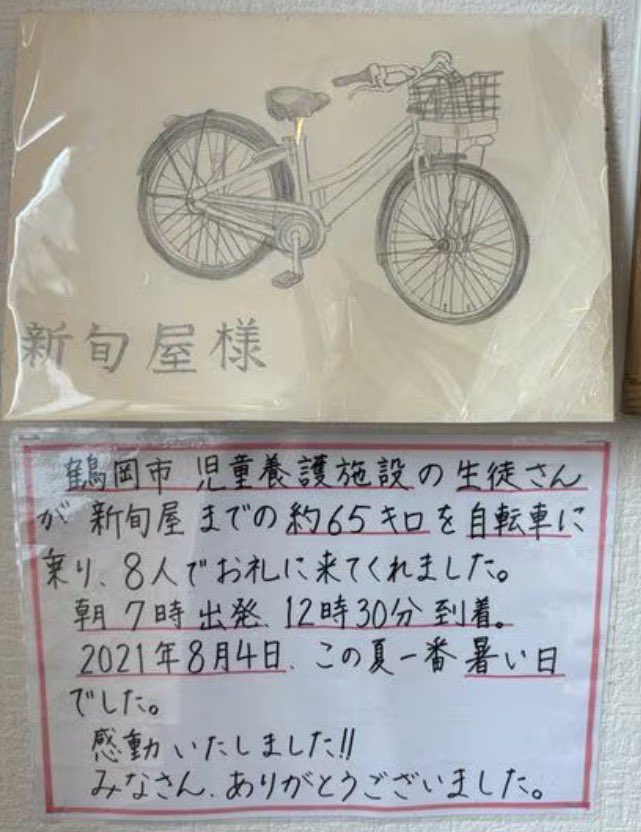 新旬屋様
鶴岡市 児童養護施設の生徒さん
が 新旬屋までの約65キロを自転車に
乗り、8人でお礼に来てくれました。
朝7時出発、12時30分到着。
2021年8月4日、この夏一番暑い日
でした。
感動いたしました!!
みなさん、ありがとうございました。